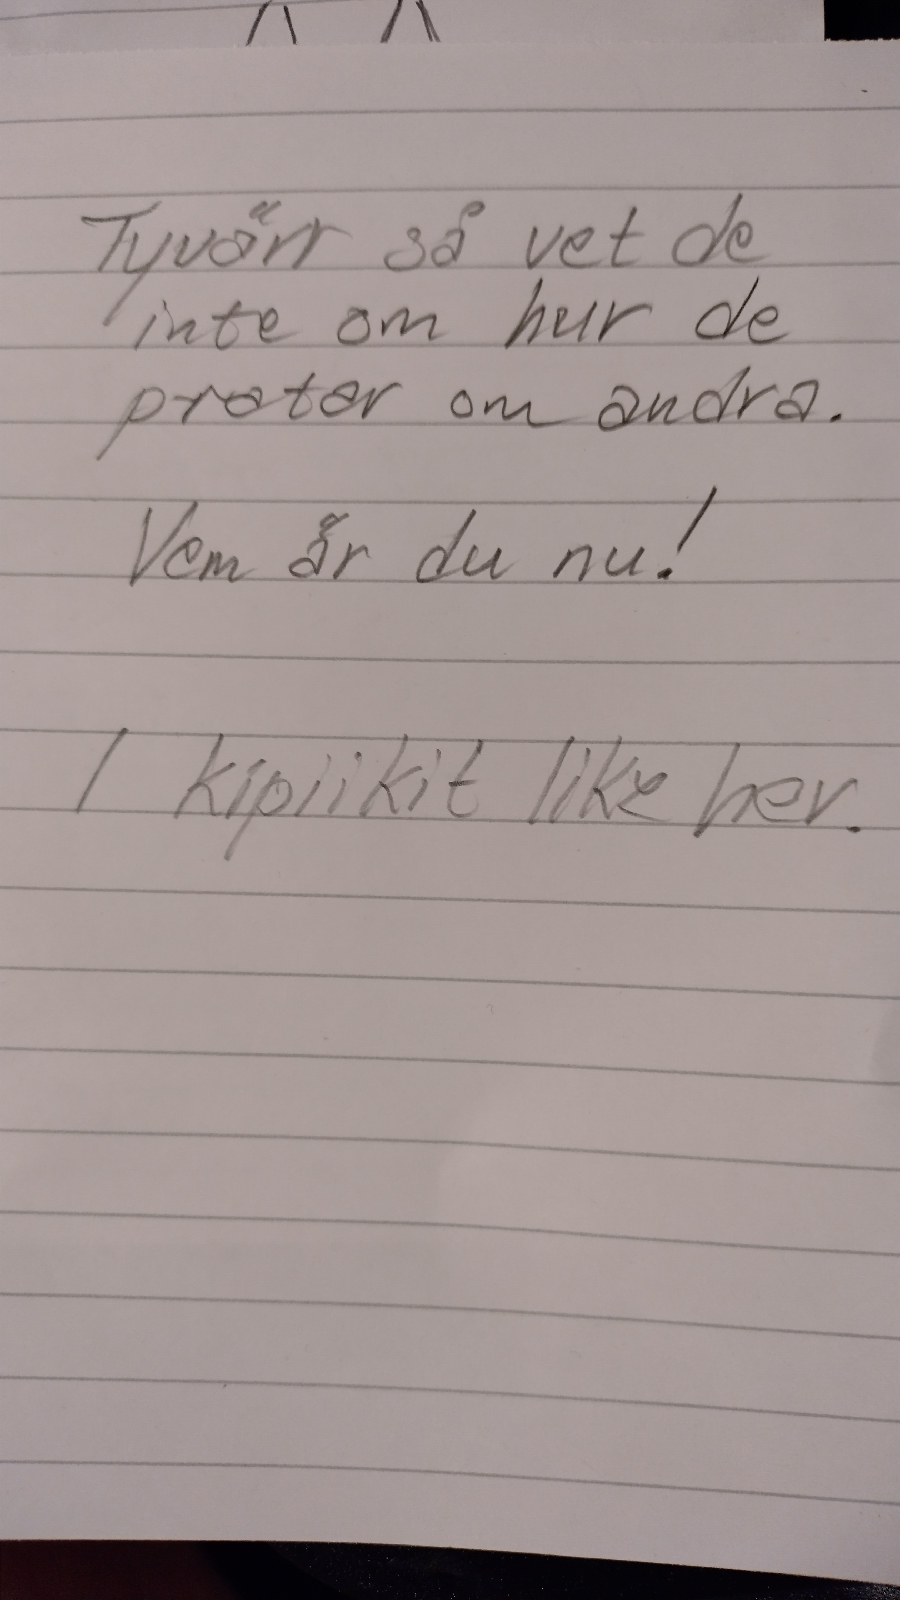 Tyvärr så vet de
inte om hur de
pratar om andra.
Vem är du nu!
I kipiikit like her.